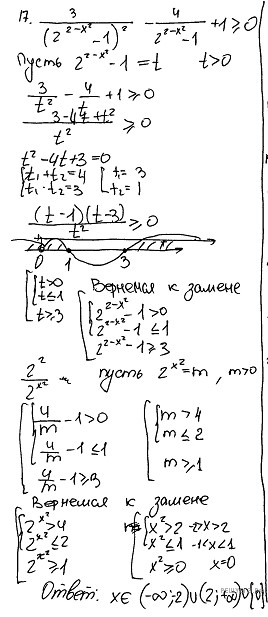 17. 3/(2^(2-x²) -1)² - 4/(2^(2-x²) -1) +1 ≥ 0
Пусть 2^(2-x²) -1 = t t>0
3/t² - 4/t +1 ≥ 0
(3-4t+t²)/t² ≥ 0
t² -4t+3=0
[t₁+t₂=4 [t₁= 3
[t₁·t₂=3 [t₂= 1
(t-1)(t-3)/t² ≥ 0
0 1 3
{t>0 Вернемся к замене
{t≤1 {2^(2-x²) -1 > 0
[t≥3 {2^(2-x²) -1 ≤ 1
[2^(2-x²) -1 ≥ 3
2²/2^(x²) пусть 2^(x²) = m , m>0
{4/m -1>0 {m > 4
{4/m -1 ≤1 {m ≤ 2
[4/m -1≥3 [m ≥ 1
Вернемся к замене
{2^(x²) >4 {x² >2 x>2
{2^(x²) ≤2 {x² ≤1 -1<x<1
[2^(x²) ≥1 [x² ≥0 x=0
Ответ: x∈ (-∞;2)∪(2;+∞)∪{0}